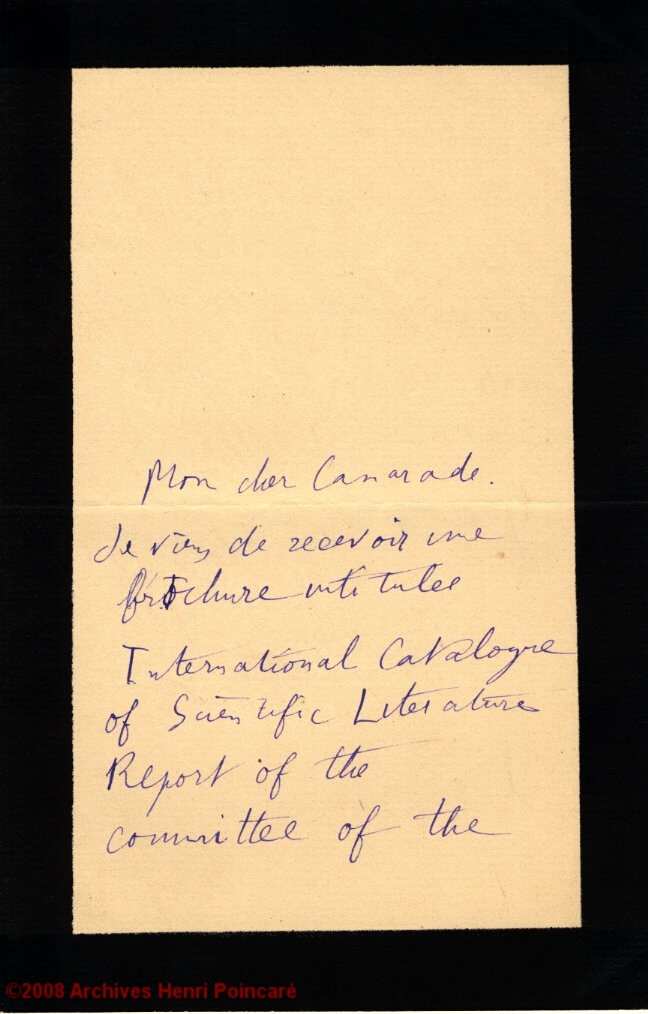 Mon cher Camarade.
Je viens de recevoir une
brochure intitulée
International Catalogue
of Scientific Literature
Report of the
committee of the
©2008 Archives Henri Poincaré